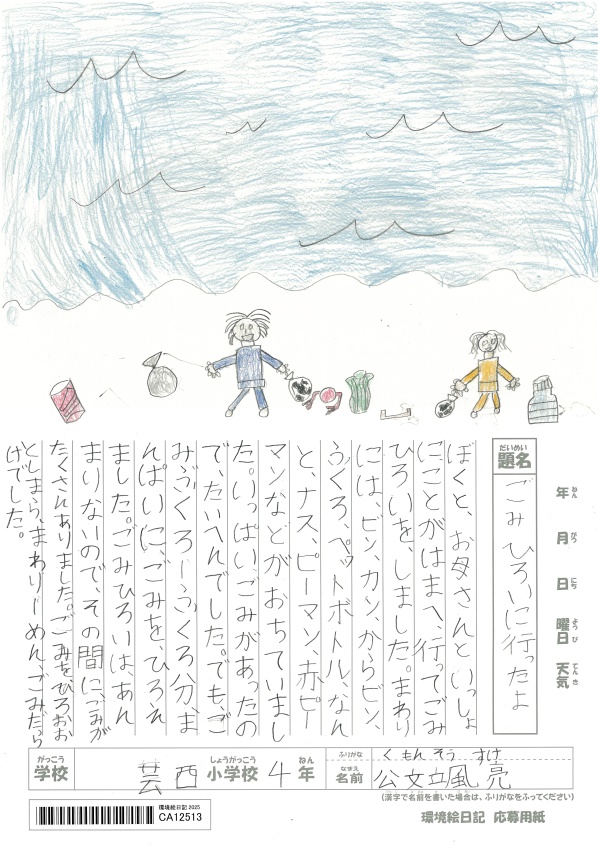 年 ねん 月 がつ 日 にち 曜日 ようび 天気 てんき
題名 だいめい
ごみひろいに行ったよ
ぼくと、お母さんといっしょ
にことがはまへ、行ってごみ
ひろいを、しました。まわり
には、ビン、カン、からビン、
ふくろ、ペットボトル、なん
と、ナス、ピーマン、赤ピー
マンなどがおちていまし
た。いっぱいごみがあったの
で、たいへんでした。でも、ご
みぶくろ一ふくろ分、ま
んぱいに、ごみを、ひろえ
ました。ごみひろいは、あん
まりないので、その間に、ごみが
たくさんありました。ごみをひろおお
としまら、まわりじめん、ごみだら
けでした。
がっこう しょうがっこう ねん ふりがな くもん そうすけ
学校 芸西 小学校 4 年 なまえ 名前 公文颯亮
(漢字で名前を書いた場合は、ふりがなをふってください)
環境絵日記 2025
CA12513
環境絵日記 応募用紙